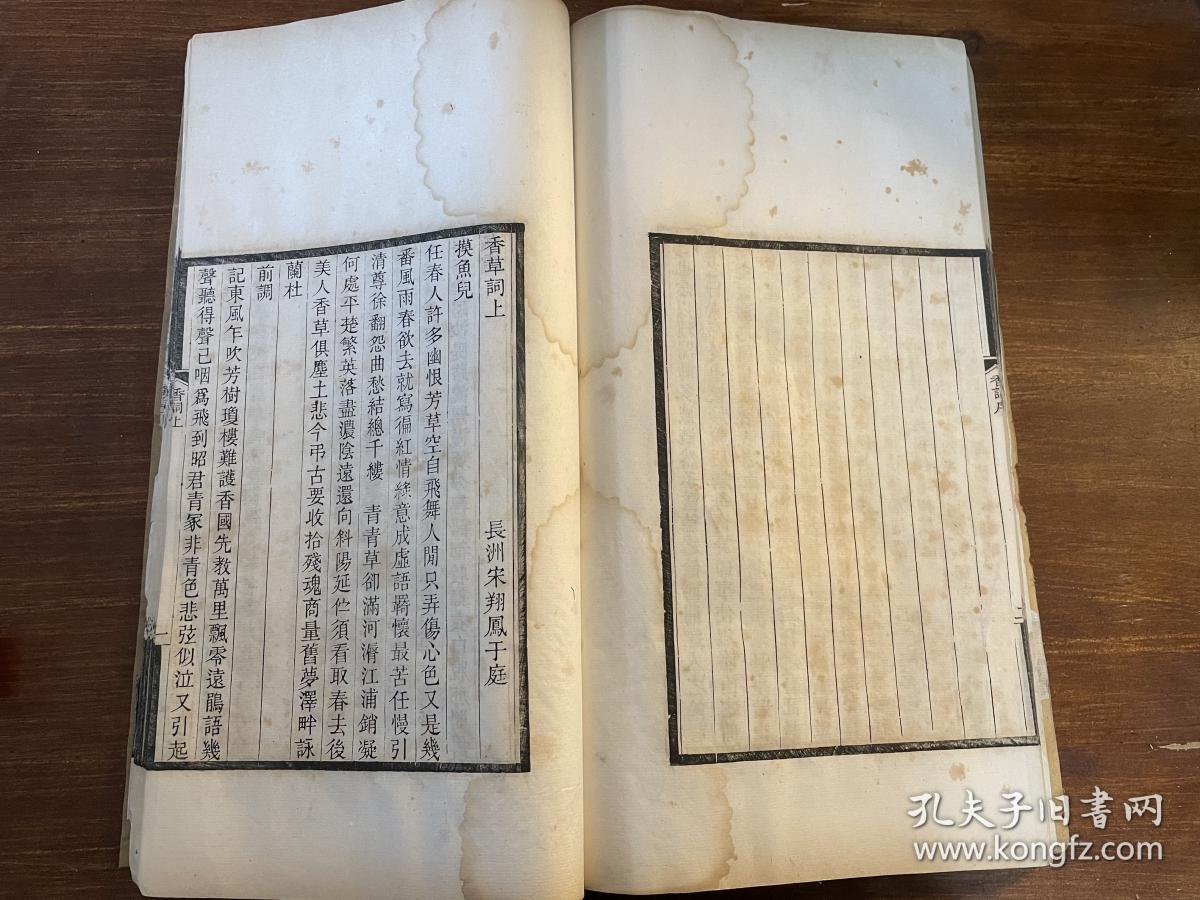 香草詞上
長洲宋翔鳳于庭
摸魚兒
任春人許多幽恨芳草空自飛舞人閒只弄傷心色又是幾
番風雨春欲去就寫徧紅情綠意成虛語羇懷最苦任慢引
清尊徐翻怨曲愁結總千縷　青青草卻滿河漘江浦銷凝
何處平楚繁英落盡濃陰遠還向斜陽延伫須看取春去後
美人香草俱塵土悲今弔古要收拾殘魂商量舊夢澤畔詠
蘭杜
前調
記東風乍吹芳樹瓊樓難護香國先教萬里飄零遠鵑語幾
聲聽得聲已咽爲飛到昭君青冢非青色悲弦似泣又引起
香詞上
一
二
孔夫子旧书网
www.kongfz.com